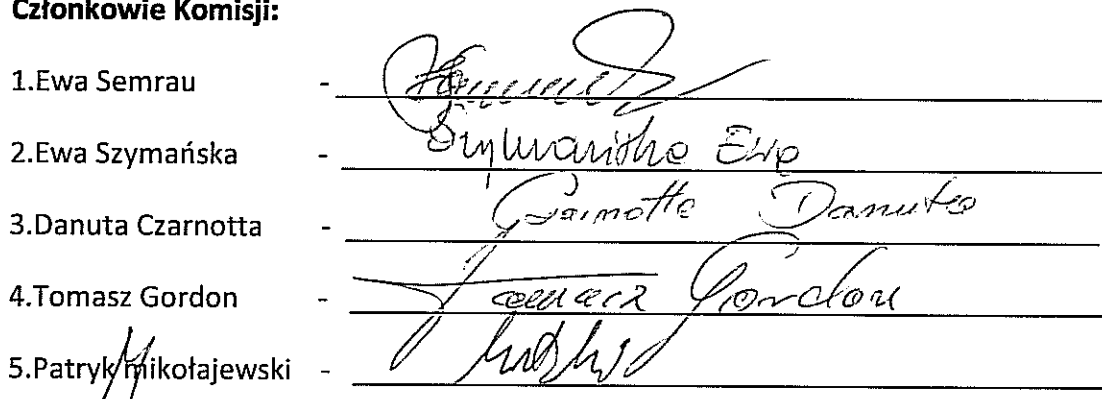 Członkowie Komisji:
1.Ewa Semrau -
2.Ewa Szymańska - Szymańska Ewa
3.Danuta Czarnotta - Czarnotta Danuta
4.Tomasz Gordon - Tomasz Gordon
5.Patryk Mikołajewski -